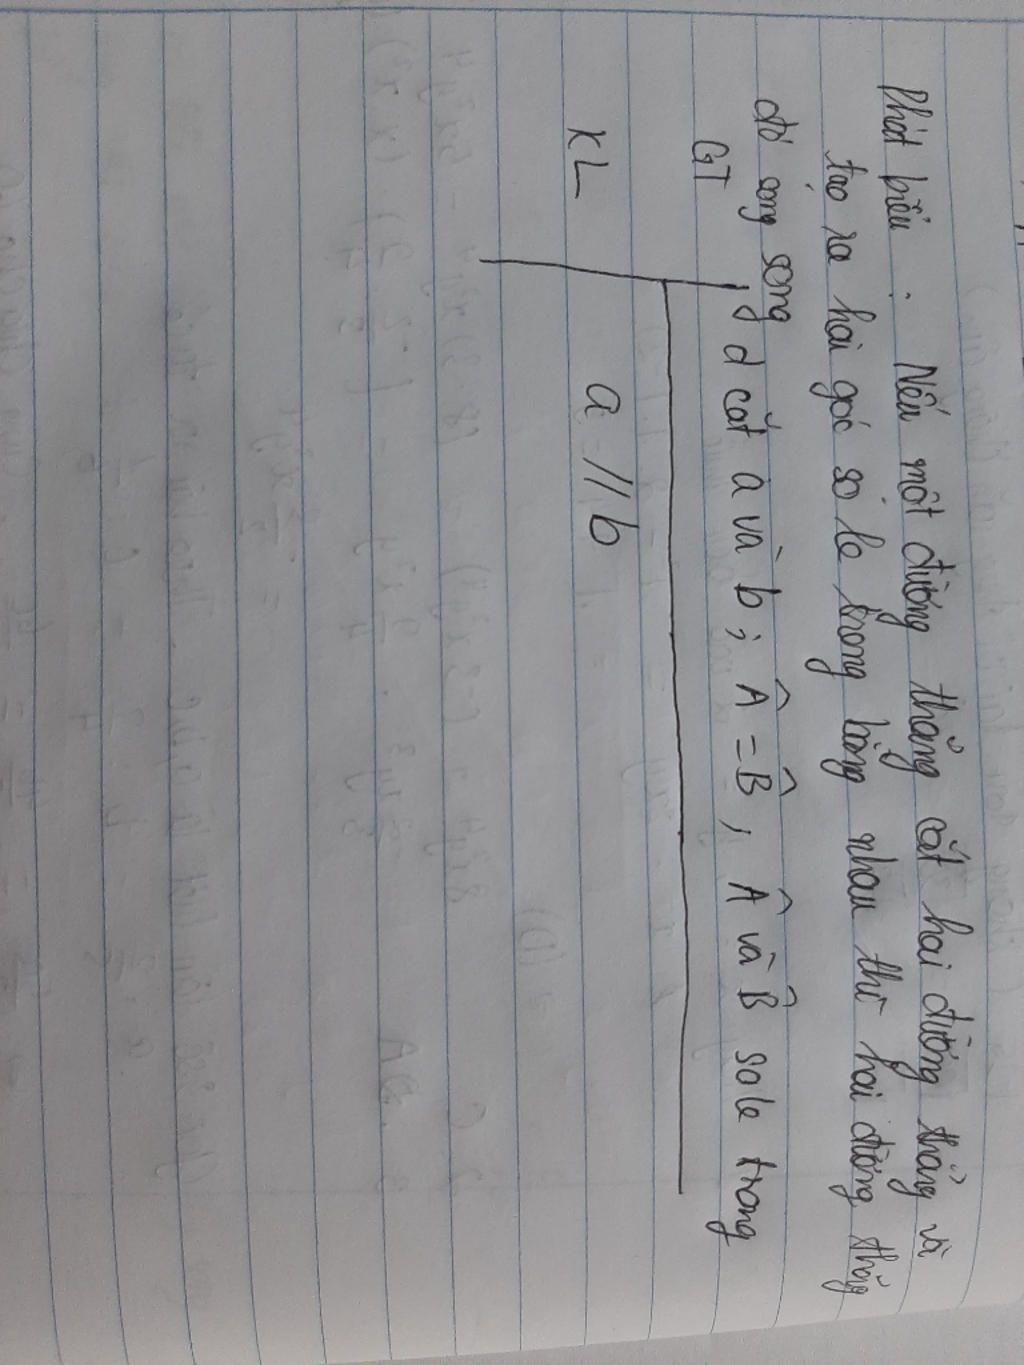 Phát biểu : Nếu một đường thẳng cắt hai đường thẳng và
tạo ra hai góc so le trong bằng nhau thì hai đường thẳng
đó song song
GT d cắt a và b ; Â = B̂ ; Â và B̂ so le trong
KL a // b